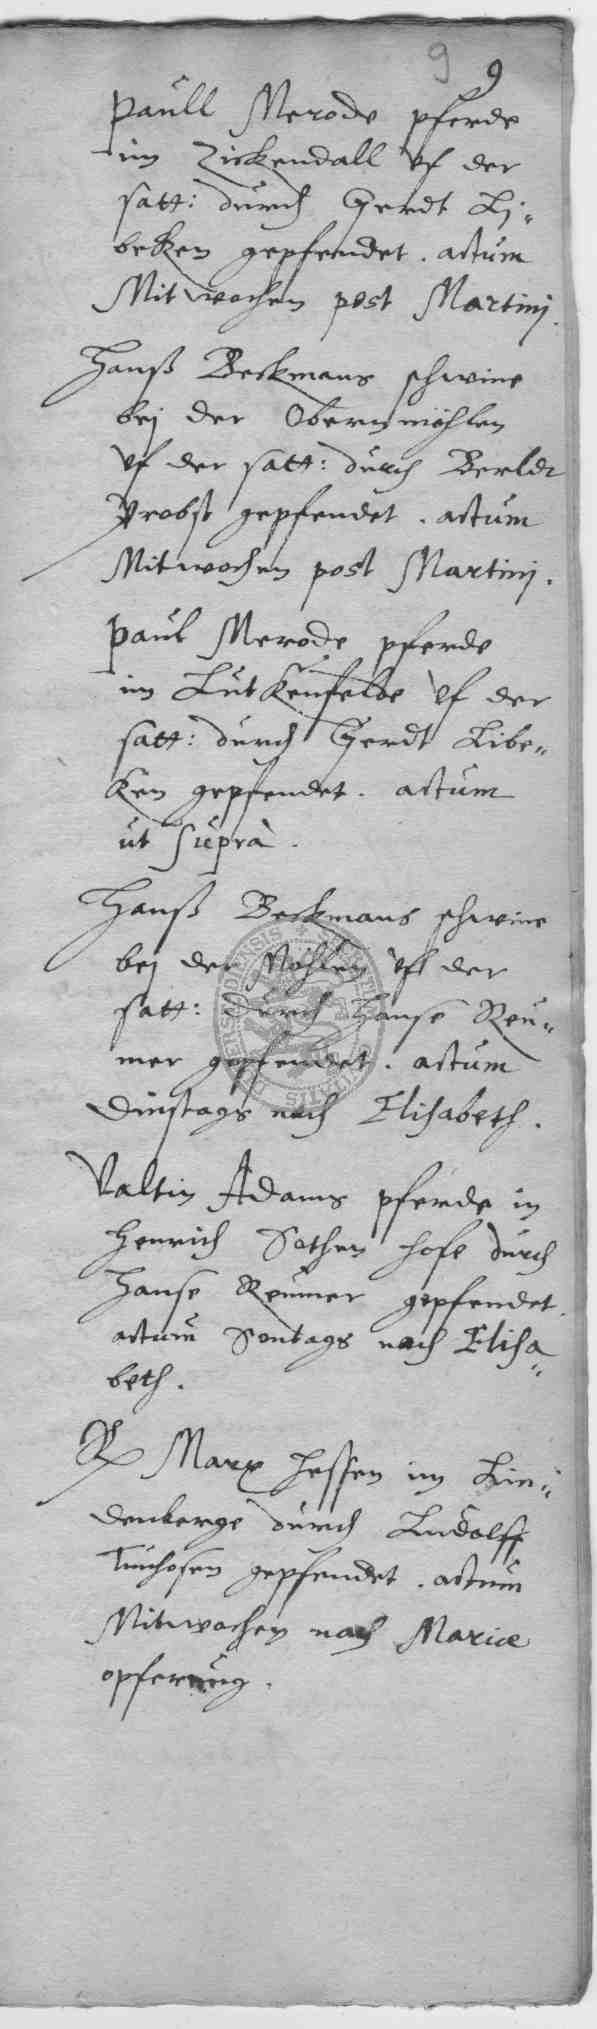 9 9
Paull Merode pferde
im Zickendall vf der
satt: durch Gerdt Li-
beken gepfendet. actum
Mitwochen post Martinj.
Hanß Beckmans schwine
bej der Obernmöhlen
vf der satt: durch Berldt
Probst gepfendet. actum
Mitwochen post Martinj.
Paul Merode pferde
im Lutkenfelde vf der
satt: durch Gerdt Libe-
ken gepfendet. actum
ut suprà.
Hanß Beckmans schwine
bej der Möhlen vf der
satt: durch Hanse Reu-
mer gepfendet. actum
Dinstags nach Elisabeth.
Valtin Adams pferde in
Henrich Sothen hofe durch
Hanse Reumer gepfendet.
actum Sontags nach Elisa-
beth.
Marx Hessen im Lin-
denberge durch Ludolff
gepfendet. actum
Mitwochen nach Mariae
opferung.